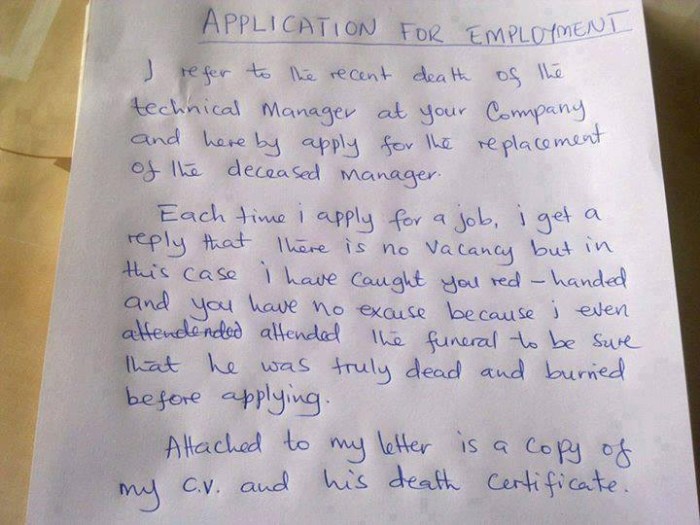 APPLICATION FOR EMPLOYMENT
I refer to the recent death of the
technical Manager at your Company
and here by apply for the replacement
of the deceased manager.
Each time i apply for a job, i get a
reply that there is no vacancy but in
this case i have caught you red-handed
and you have no excuse because i even
attendended attended the funeral to be sure
that he was truly dead and burried
before applying.
Attached to my letter is a copy of
my C.V. and his death certificate.